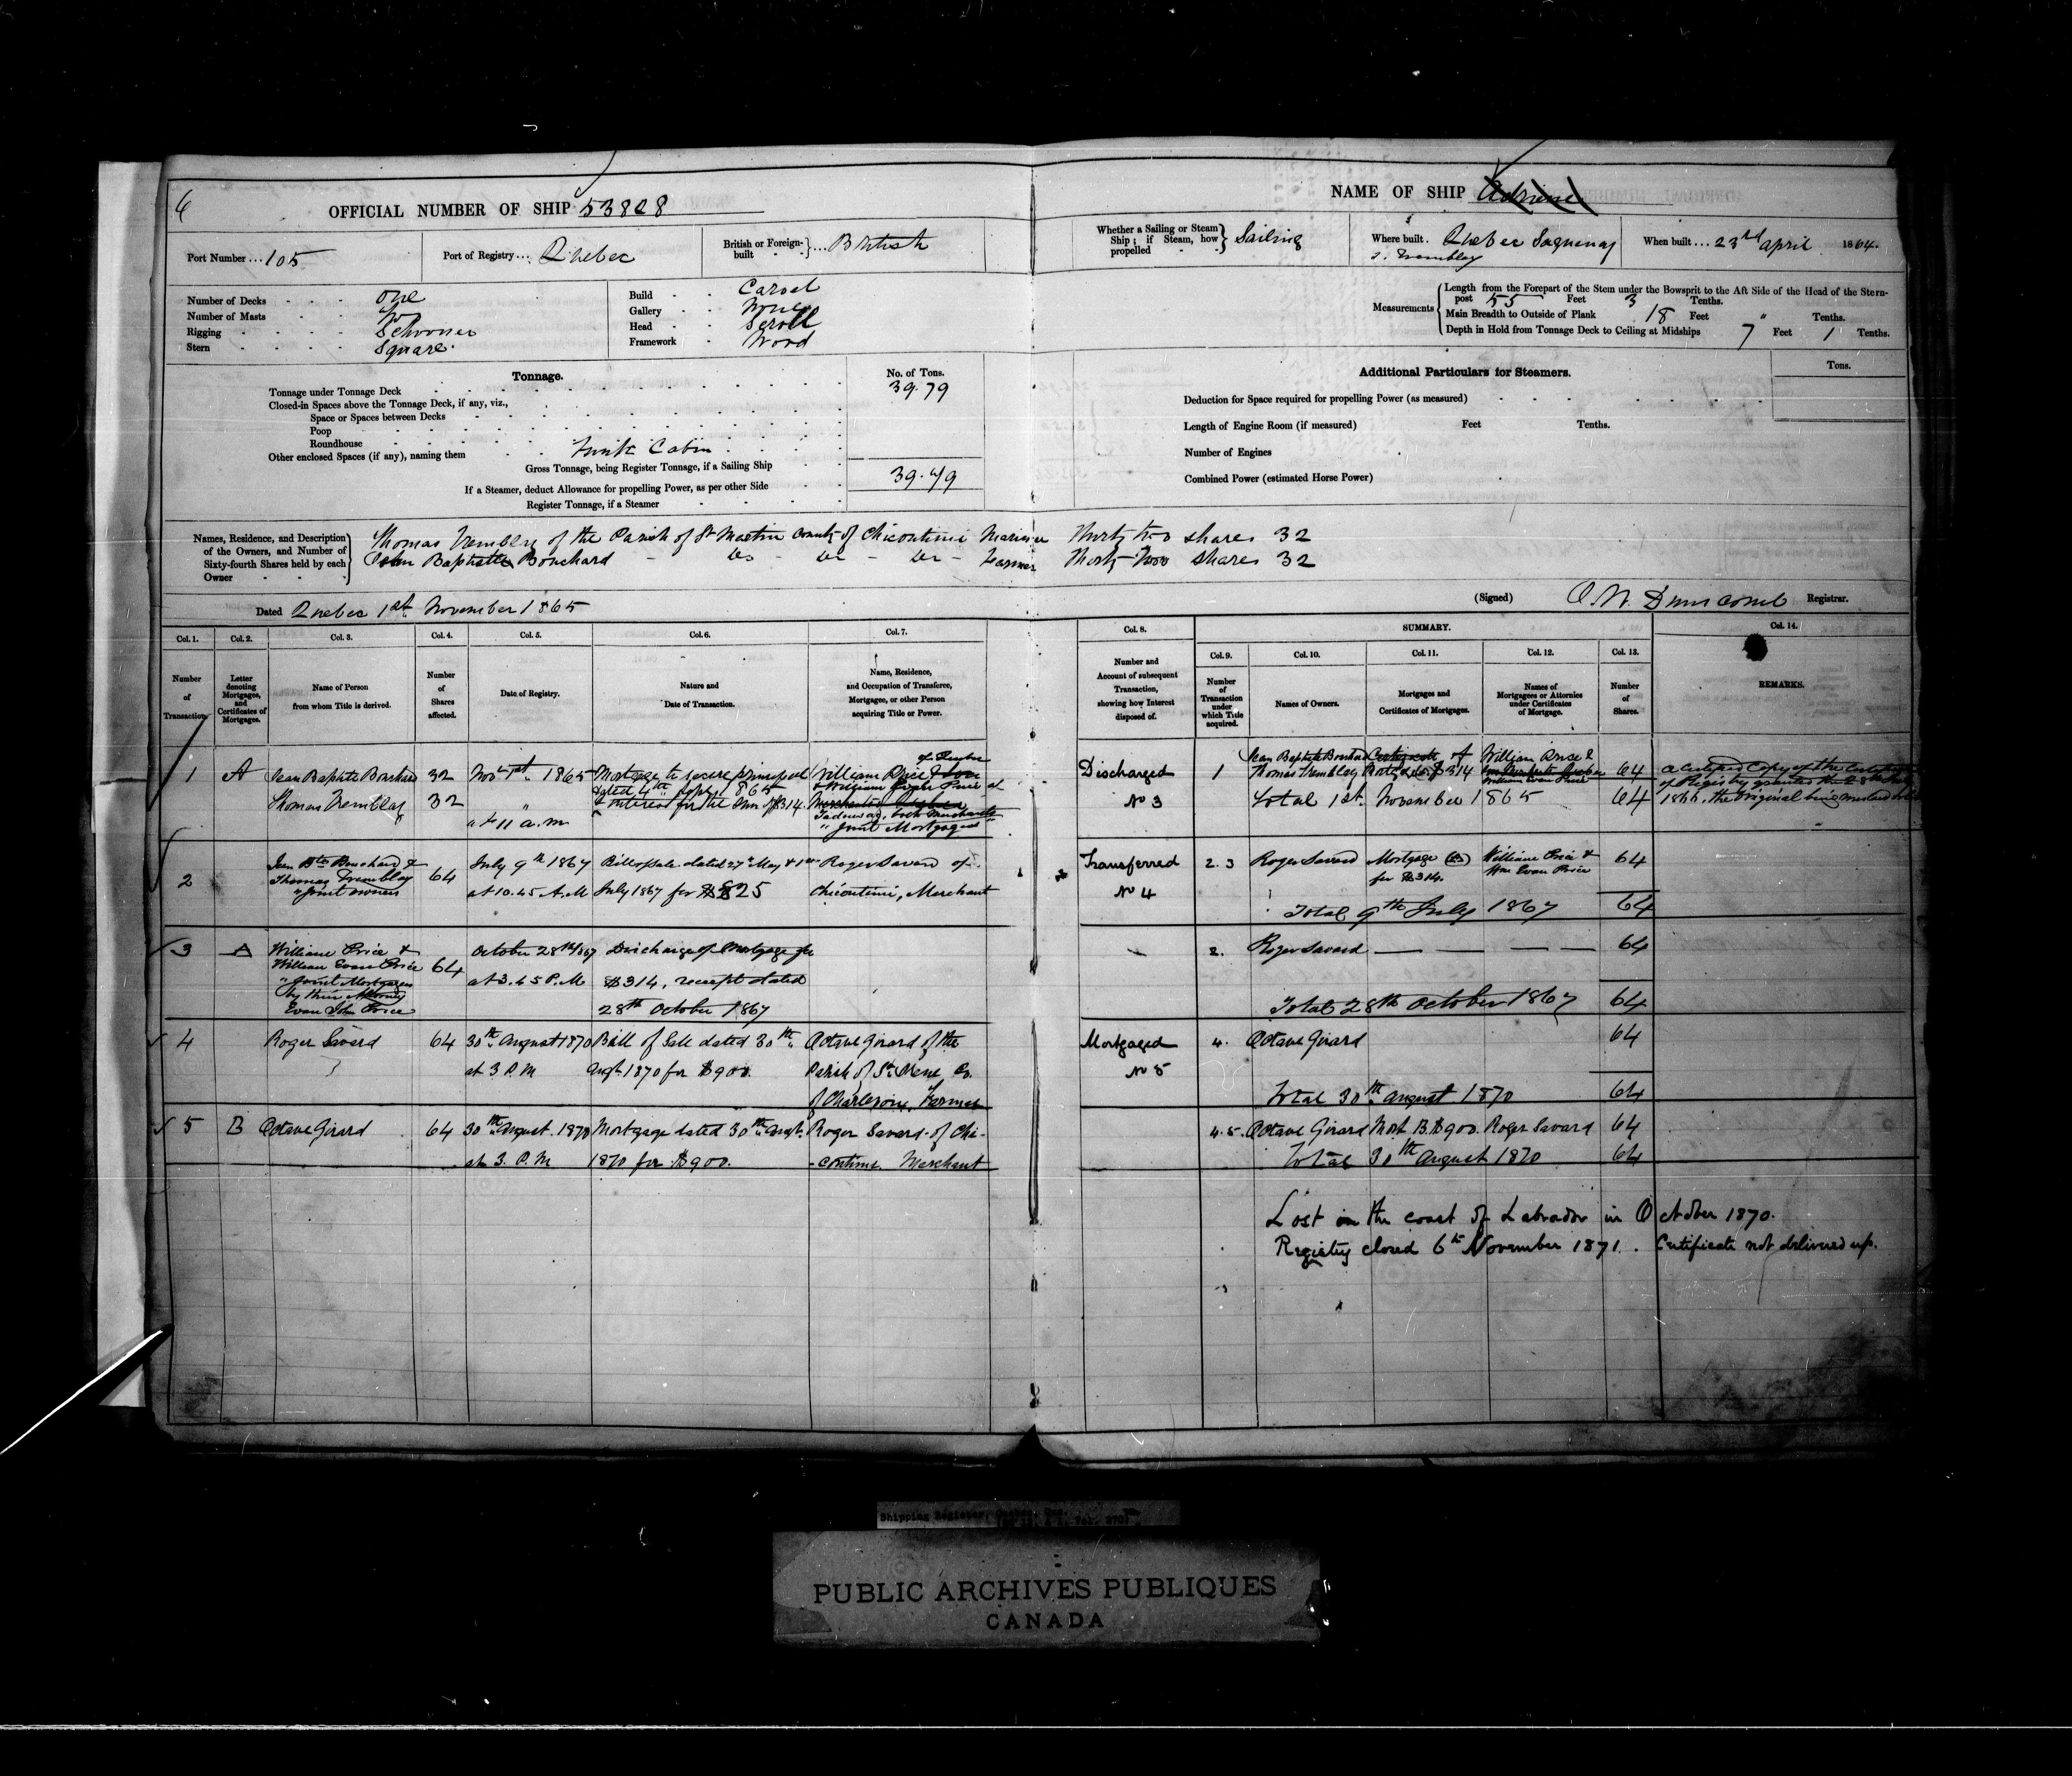 6
OFFICIAL NUMBER OF SHIP 53828
NAME OF SHIP Adriene
Port Number 105
Port of Registry Quebec
British or Foreign-built British
Whether a Sailing or Steam Ship; if Steam, how propelled Sailing
Where built. Quebec Saguenay
Tremblay
When built 23rd April 1864.
Number of Decks One
Number of Masts
Rigging Schooner
Stern Square.
Build Carvel
Gallery None
Head Scroll
Framework Wood
Measurements
Length from the Forepart of the Stem under the Bowsprit to the Aft Side of the Head of the Stern-
post 55 Feet 3 Tenths.
Main Breadth to Outside of Plank 18 Feet " Tenths.
Depth in Hold from Tonnage Deck to Ceiling at Midships 7 Feet 1 Tenths.
Tonnage.
No. of Tons.
Tonnage under Tonnage Deck 39.79
Closed-in Spaces above the Tonnage Deck, if any, viz.,
Space or Spaces between Decks
Poop
Roundhouse
Other enclosed Spaces (if any), naming them Cabin
Gross Tonnage, being Register Tonnage, if a Sailing Ship 39.79
If a Steamer, deduct Allowance for propelling Power, as per other Side
Register Tonnage, if a Steamer
Additional Particulars for Steamers.
Tons.
Deduction for Space required for propelling Power (as measured)
Length of Engine Room (if measured) Feet Tenths.
Number of Engines
Combined Power (estimated Horse Power)
Names, Residence, and Description of the Owners, and Number of Sixty-fourth Shares held by each Owner
Thomas Trembley of the Parish of St Martin County of Chicoutimi Mariner Thirty two shares 32
John Baptiste Bouchard - do - do - do - Farmer Thirty Two Shares 32
Dated Quebec 1st November 1865
(Signed) Dunscomb Registrar.
Col. 1.
Number of Transaction.
Col. 2.
Letter denoting Mortgages, and Certificates of Mortgages.
Col. 3.
Name of Person from whom Title is derived.
Col. 4.
Number of Shares affected.
Col. 5.
Date of Registry.
Col. 6.
Nature and Date of Transaction.
Col. 7.
Name, Residence, and Occupation of Transferee, Mortgagee, or other Person acquiring Title or Power.
Col. 8.
Number and Account of subsequent Transaction, showing how Interest disposed of.
SUMMARY.
Col. 9.
Number of Transaction under which Title acquired.
Col. 10.
Names of Owners.
Col. 11.
Mortgages and Certificates of Mortgages.
Col. 12.
Names of Mortgagees or Attornies under Certificates of Mortgage.
Col. 13.
Number of Shares.
Col. 14.
REMARKS.
1 A Jean Baptiste Bouchard 32 Nov 1st 1865 Mortgage to secure principal
dated 4th Sept 1865
& interest for the Sum of $314.
Thomas Tremblay 32 " at 11 a.m
of Quebec
William Price & Son
& William Evan Price of
Merchants Quebec
Tadousac, both Merchants
"Joint Mortgagees"
Discharged
No 3
1 Jean Baptiste Bouchard
Thomas Tremblay
William Price &
William Evan Price
64
Total 1st November 1865 64
a Certified Copy of the Certificate
of Registry granted the 28th July
1866, the Original being
2 Jean Bte Bouchard &
Thomas Tremblay
"Joint owners
64 July 9th 1867
at 10.45 A.M
Bill of Sale dated 27th May & 1st
July 1867 for $825
Roger Savard of
Chicoutimi, Merchant
Transferred
No 4
2.3 Roger Savard Mortgage (A)
for $314.
William Price &
Wm Evan Price
64
Total 9th July 1867 64
3 A William Price &
William Evan Price
"Joint Mortgagees
by their Attorney
Evan John Price
64 October 28th 1867
at 3.45 P.M
Discharge of Mortgage for
$314, receipt dated
28th October 1867
2. Roger Savard 64
Total 28th October 1867 64
4 Roger Savard 64 30th August 1870
at 3 P.M
Bill of Sale dated 30th
Augt. 1870 for $900.
Octave Girard of the
Parish of St. Irene Co.
of Charlevoix, Farmer
Mortgaged
No 5
4. Octave Girard 64
Total 30th August 1870 64
5 B Octave Girard 64 30th August. 1870
at 3. P.M
Mortgage dated 30th Augt.
1870 for $900.
Roger Savard of Chi-
-coutimi. Merchant
4.5. Octave Girard Mort B. $900. Roger Savard 64
Total 30th August 1870 64
Lost on the coast of Labrador in October 1870.
Registry closed 6th November 1871. Certificate not delivered up.
Shipping Register,
PUBLIC ARCHIVES PUBLIQUES
CANADA